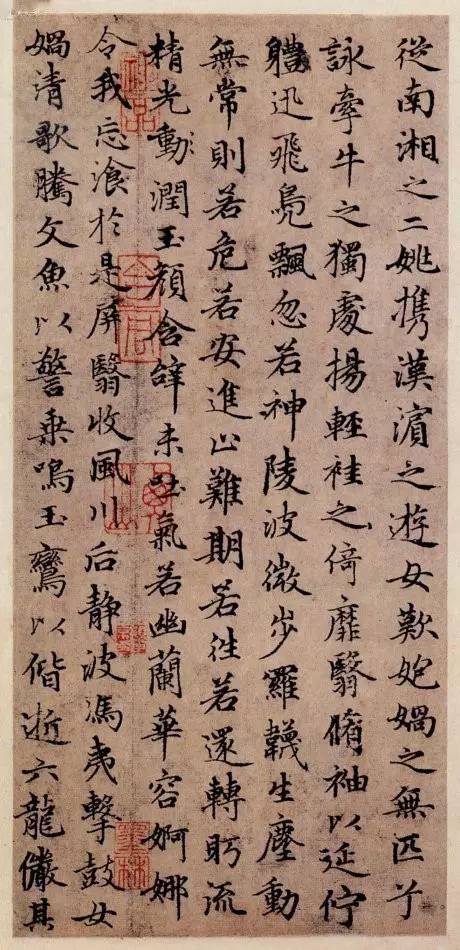 從南湘之二姚携漢濱之遊女歎媧之無匹兮
詠牽牛之獨處揚輕袿之倚靡翳脩袖以延佇
軆迅飛鳧飄忽若神陵波微步羅韈生塵動
無常則若危若安進止難期若往若還轉眄流
精光動潤玉顏含辝未吐氣若幽蘭華容婀娜
令我忘飡於是屏翳收風川后静波馮夷擊鼓女
媧清歌騰文魚以警乘鳴玉鸞以偕逝六龍儼其